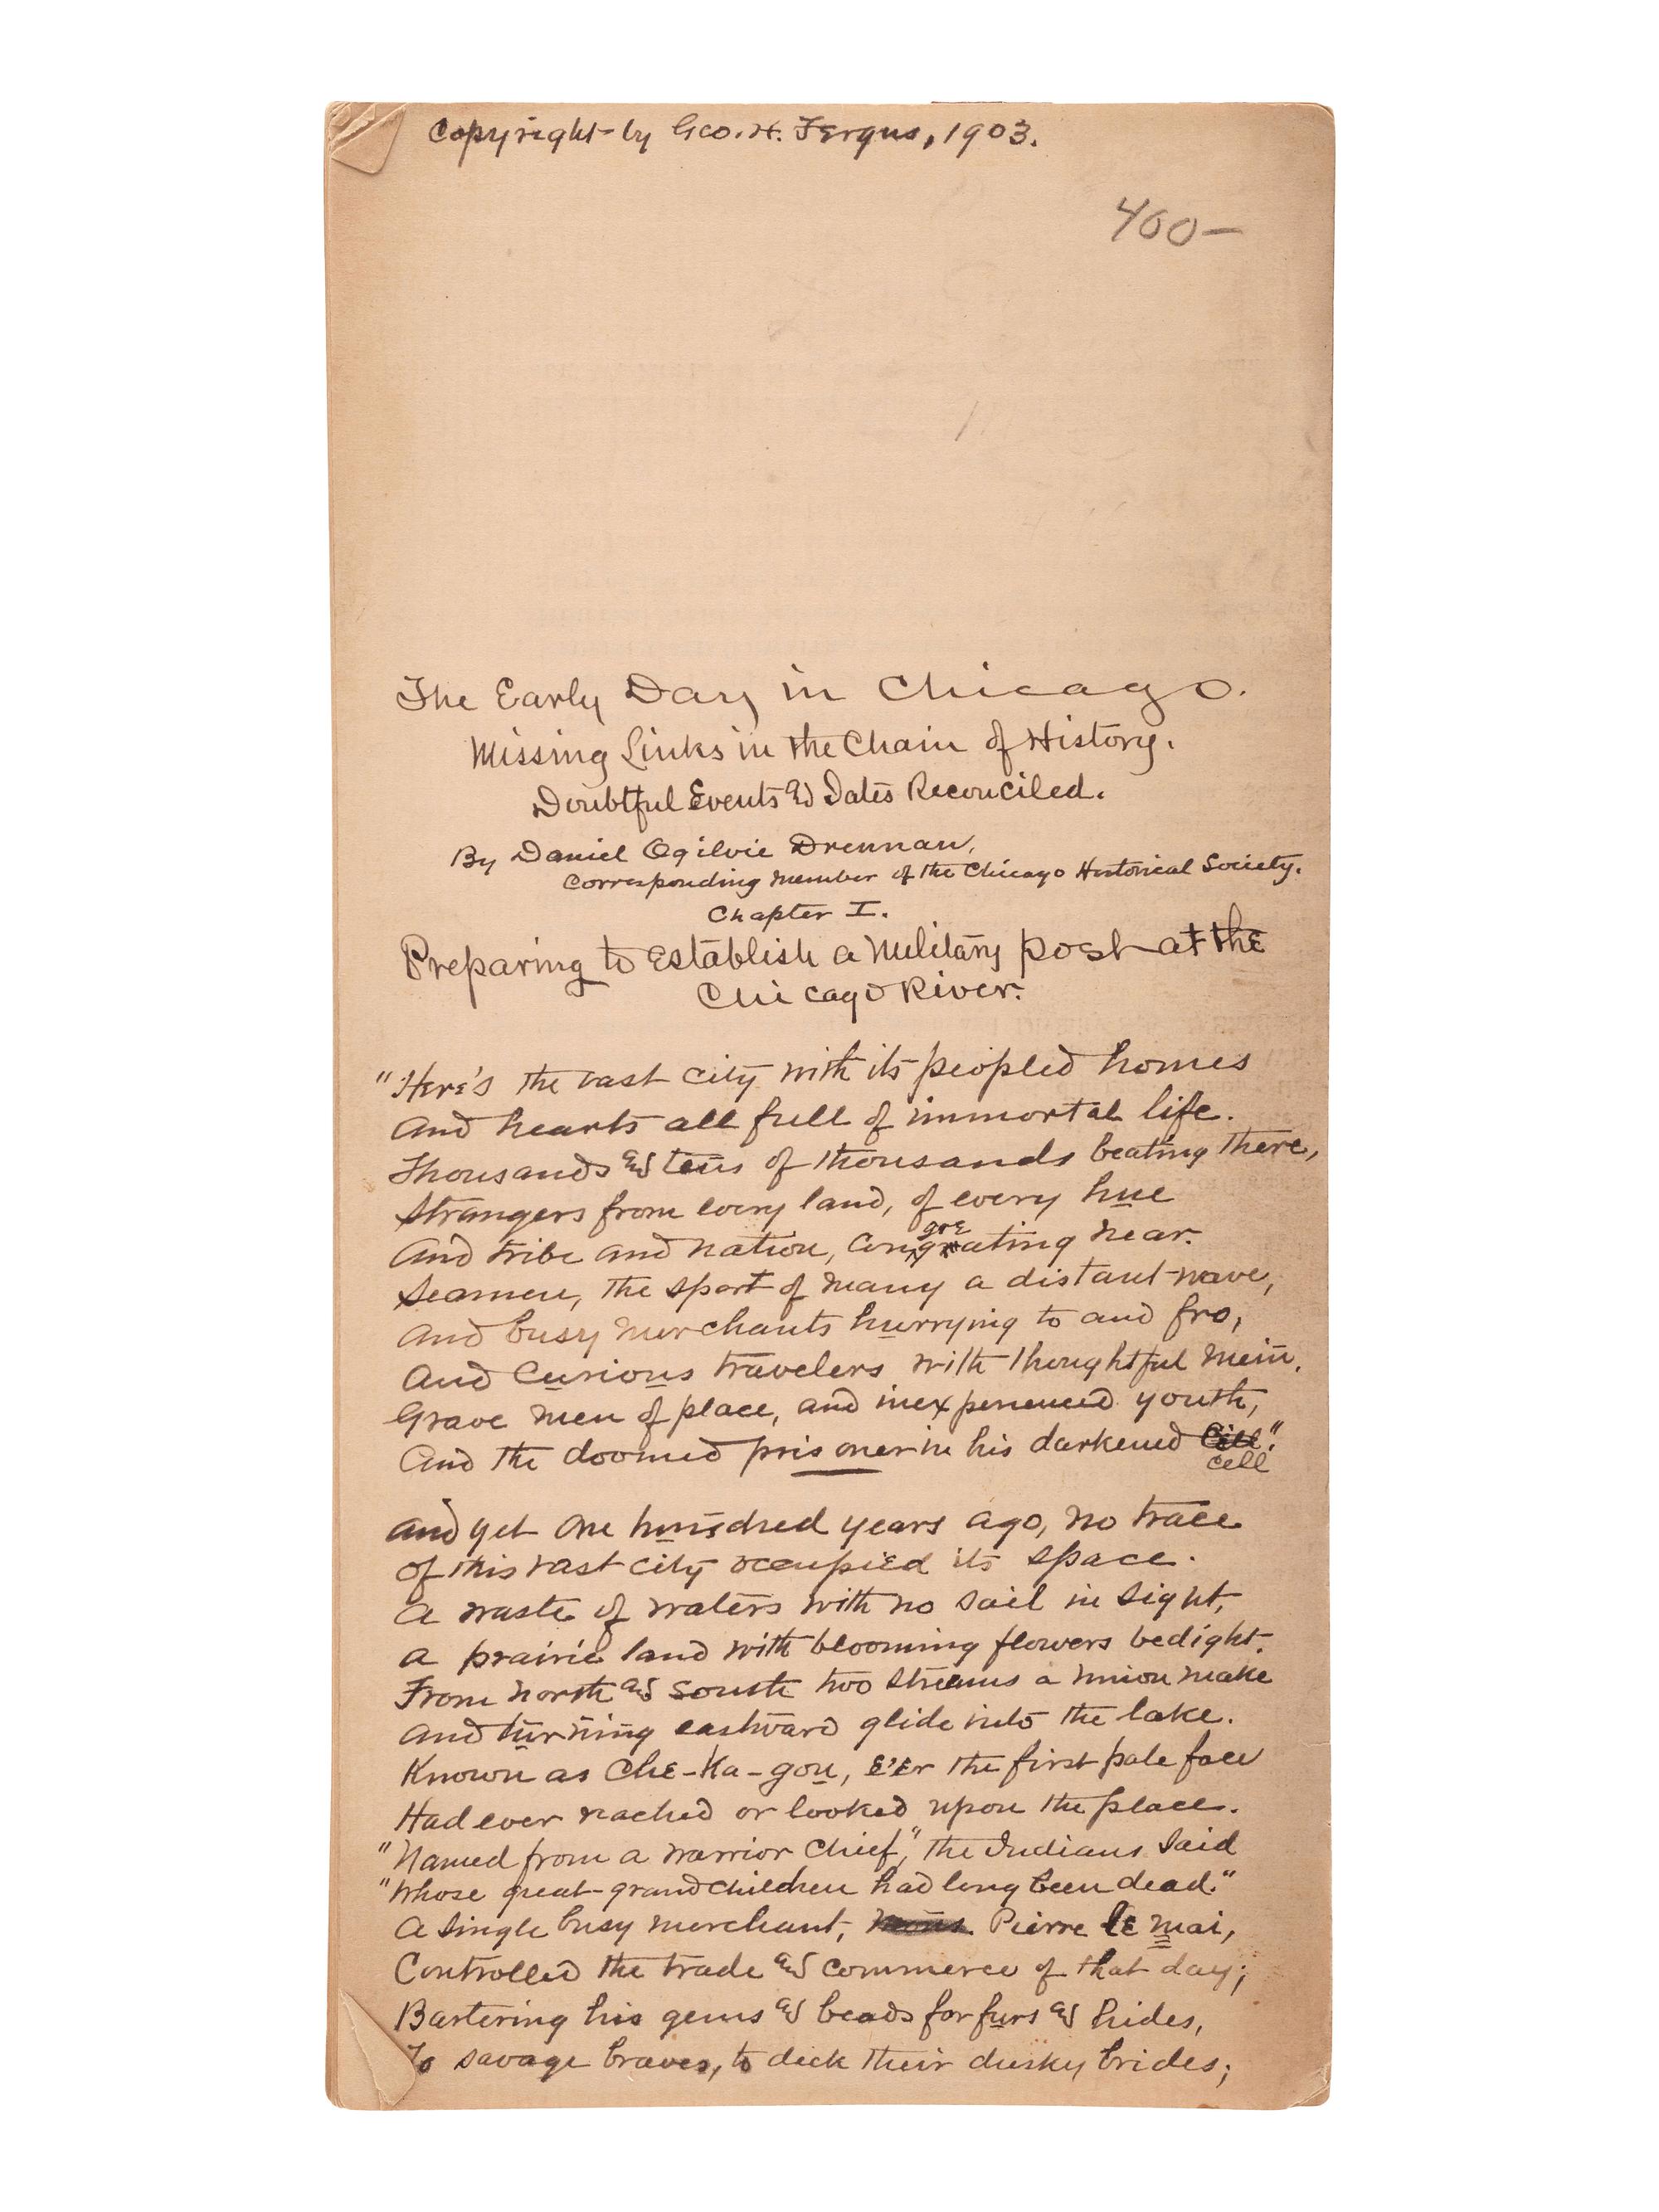 Copyright by Geo. H. Fergus, 1903.
400—
The Early Day in Chicago.
Missing Links in the Chain of History.
Doubtful Events and Dates Reconciled.
By Daniel Ogilvie Drennan,
Corresponding Member of the Chicago Historical Society.
Chapter I.
Preparing to Establish a Military post at the
Chicago River.
"Here's the vast city with its peopled homes
And hearts all full of immortal life.
Thousands and tens of thousands beating there,
Strangers from every land, of every hue
And tribe and nation, congregating near.
Seamen, the sport of many a distant wave,
And busy merchants hurrying to and fro,
And Curious travelers with thoughtful mein,
Grave men of place, and inexperienced youth,
And the doomed prisoner in his darkened cell."
And yet One hundred years ago, no trace
Of this vast city occupied its space.
A waste of waters with no sail in sight,
A prairie land with blooming flowers bedight.
From north and south two streams a union make
And turning eastward glide into the lake.
Known as Che-Ka-gou, e'er the first pale face
Had ever reached or looked upon the place.
"Named from a warrior Chief," the Indians said
"Whose great-grandchildren had long been dead."
A single busy merchant, Pierre le mai,
Controlled the trade and commerce of that day;
Bartering his gems and beads for furs and hides,
To savage braves, to deck their dusky brides;